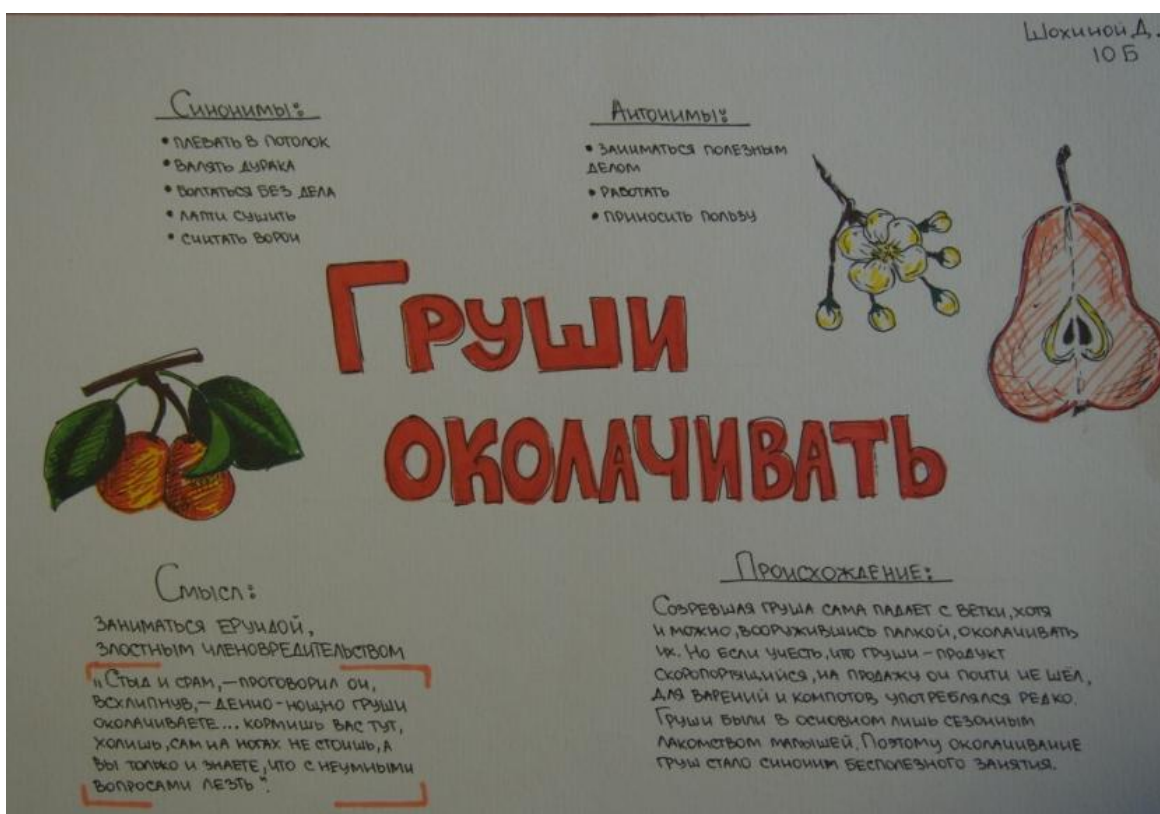 Шохиной Д.
10 Б
Синонимы:
• плевать в потолок
• валять дурака
• болтаться без дела
• лапти сушить
• считать ворон
Антонимы:
• заниматься полезным
делом
• работать
• приносить пользу
Груши
околачивать
Смысл:
заниматься ерундой,
злостным членовредительством
„Стыд и срам, – проговорил он,
всхлипнув, – денно-нощно груши
околачиваете... кормишь вас тут,
холишь, сам на ногах не стоишь, а
вы только и знаете, что с неумными
вопросами лезть".
Происхождение:
Созревшая груша сама падает с ветки, хотя
и можно, вооружившись палкой, околачивать
их. Но если учесть, что груши – продукт
скоропортящийся, на продажу он почти не шёл,
для варений и компотов употреблялся редко.
Груши были в основном лишь сезонным
лакомством малышей. Поэтому околачивание
груш стало синоним бесполезного занятия.